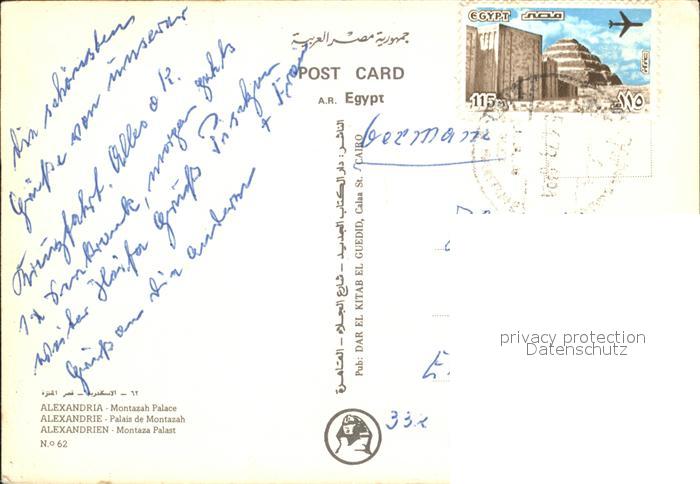 Die schönsten
Grüße von unserer
Kreuzfahrt. Alles o.k.
1x Seekrank, morgen gehts
weiter Haifa Grüß
+ Frau
Grüßen die anderen
جمهورية مصر العربية
POST CARD
A.R. Egypt
EGYPT مصر
115
١١٥
Germany
الناشر: دار الكتاب الجديد - شارع الجلاء - القاهرة
Pub: DAR EL KITAB EL GUEDID, Calaa St. CAIRO
٦٢ - الاسكندرية - قصر المنتزة
ALEXANDRIA - Montazah Palace
ALEXANDRIE - Palais de Montazah
ALEXANDRIEN - Montaza Palast
N.o 62
privacy protection
Datenschutz